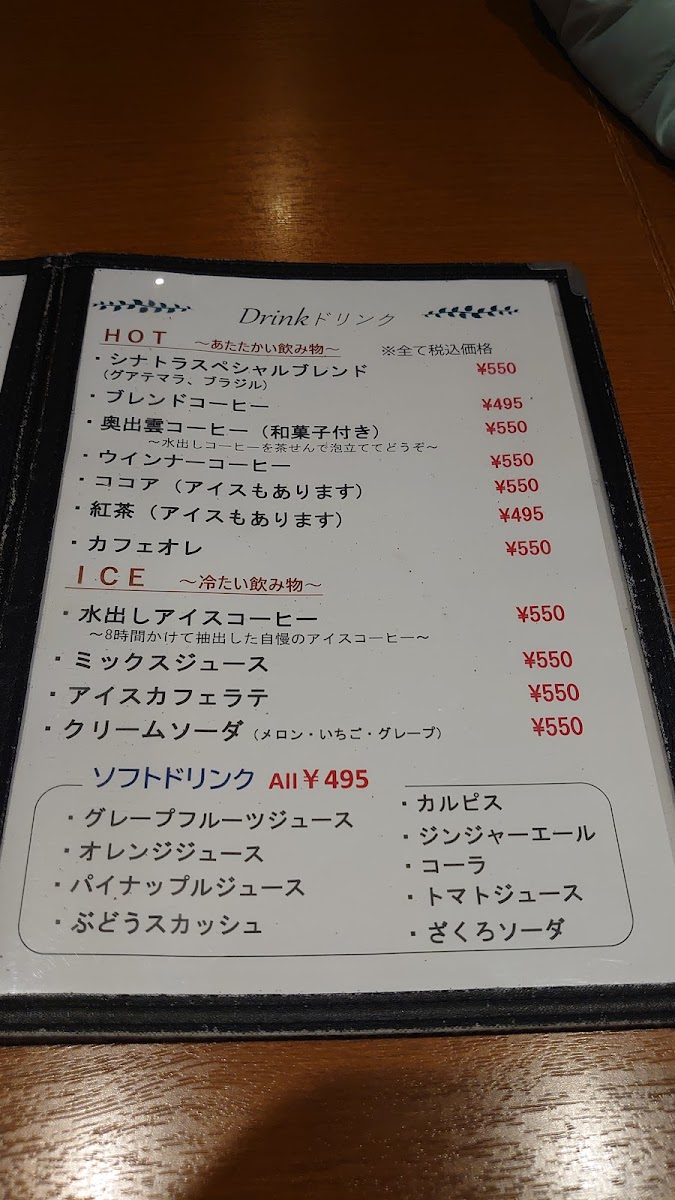 Drinkドリンク
HOT ～あたたかい飲み物～ ※全て税込価格
・シナトラスペシャルブレンド ¥550
（グアテマラ、ブラジル）
・ブレンドコーヒー ¥495
・奥出雲コーヒー（和菓子付き） ¥550
～水出しコーヒーを茶せんで泡立ててどうぞ～
・ウインナーコーヒー ¥550
・ココア（アイスもあります） ¥550
・紅茶（アイスもあります） ¥495
・カフェオレ ¥550
ICE ～冷たい飲み物～
・水出しアイスコーヒー ¥550
～8時間かけて抽出した自慢のアイスコーヒー～
・ミックスジュース ¥550
・アイスカフェラテ ¥550
・クリームソーダ（メロン・いちご・グレープ） ¥550
ソフトドリンク All￥495
・グレープフルーツジュース
・オレンジジュース
・パイナップルジュース
・ぶどうスカッシュ
・カルピス
・ジンジャーエール
・コーラ
・トマトジュース
・ざくろソーダ